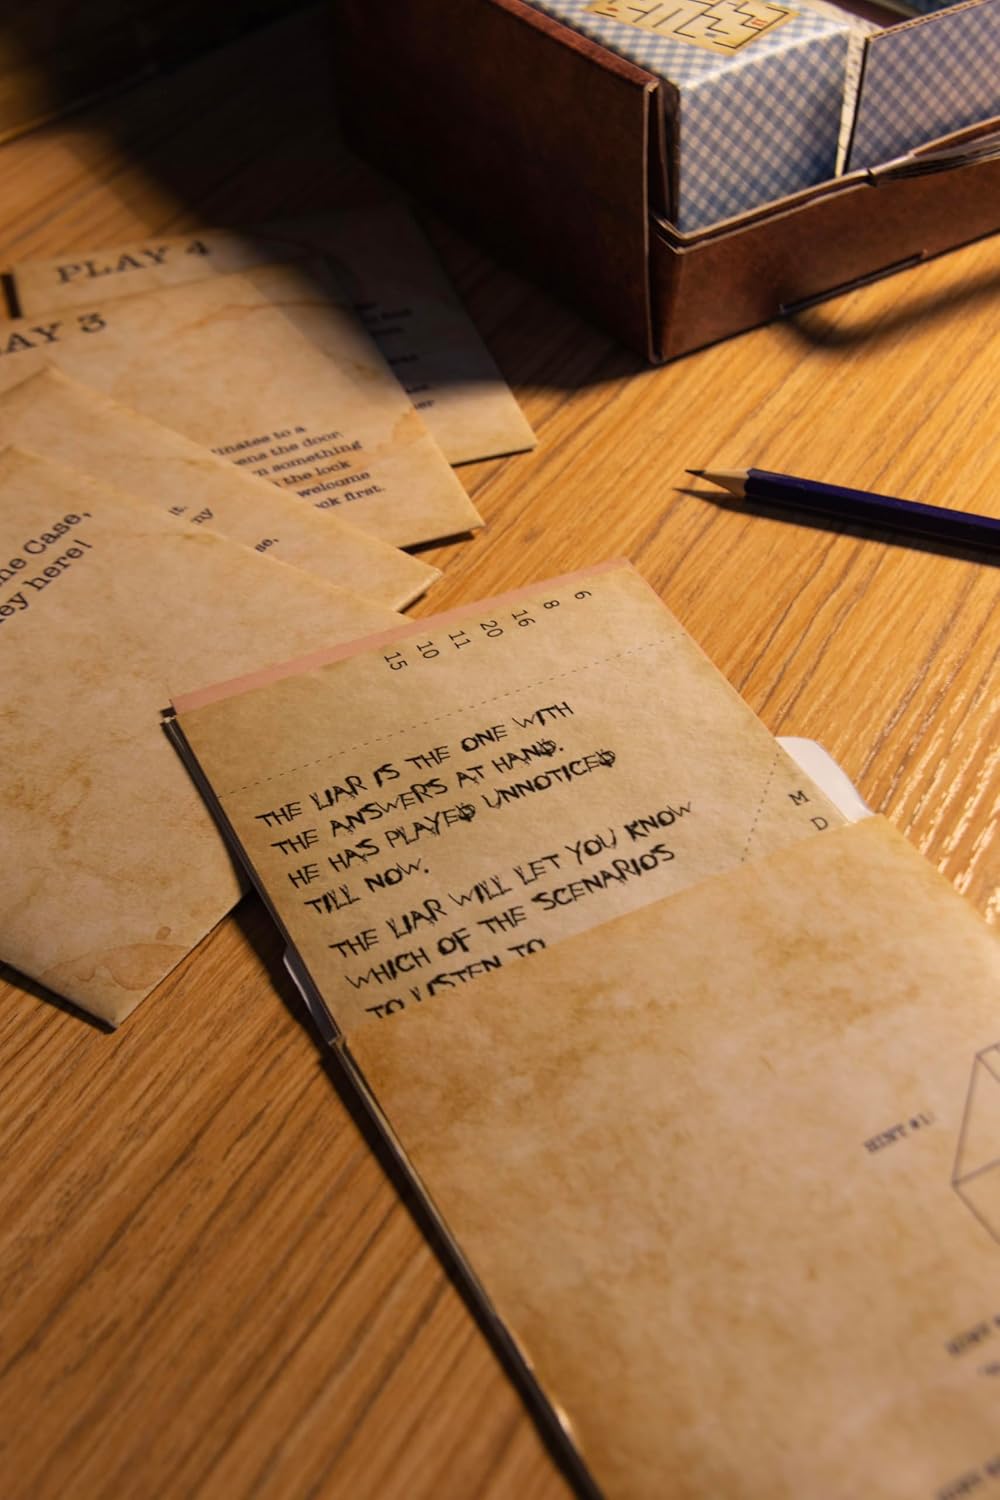 PLAY 4
AY 3
inates to a
ens the door.
n something
the lock
welcome
ok first.
ny
se,
he Case,
ey here!
6
8
16
20
11
10
15
THE LIAR IS THE ONE WITH
THE ANSWERS AT HAND.
HE HAS PLAYED UNNOTICED
TILL NOW.
THE LIAR WILL LET YOU KNOW
WHICH OF THE SCENARIOS
TO LISTEN TO
M
D
HINT #1: